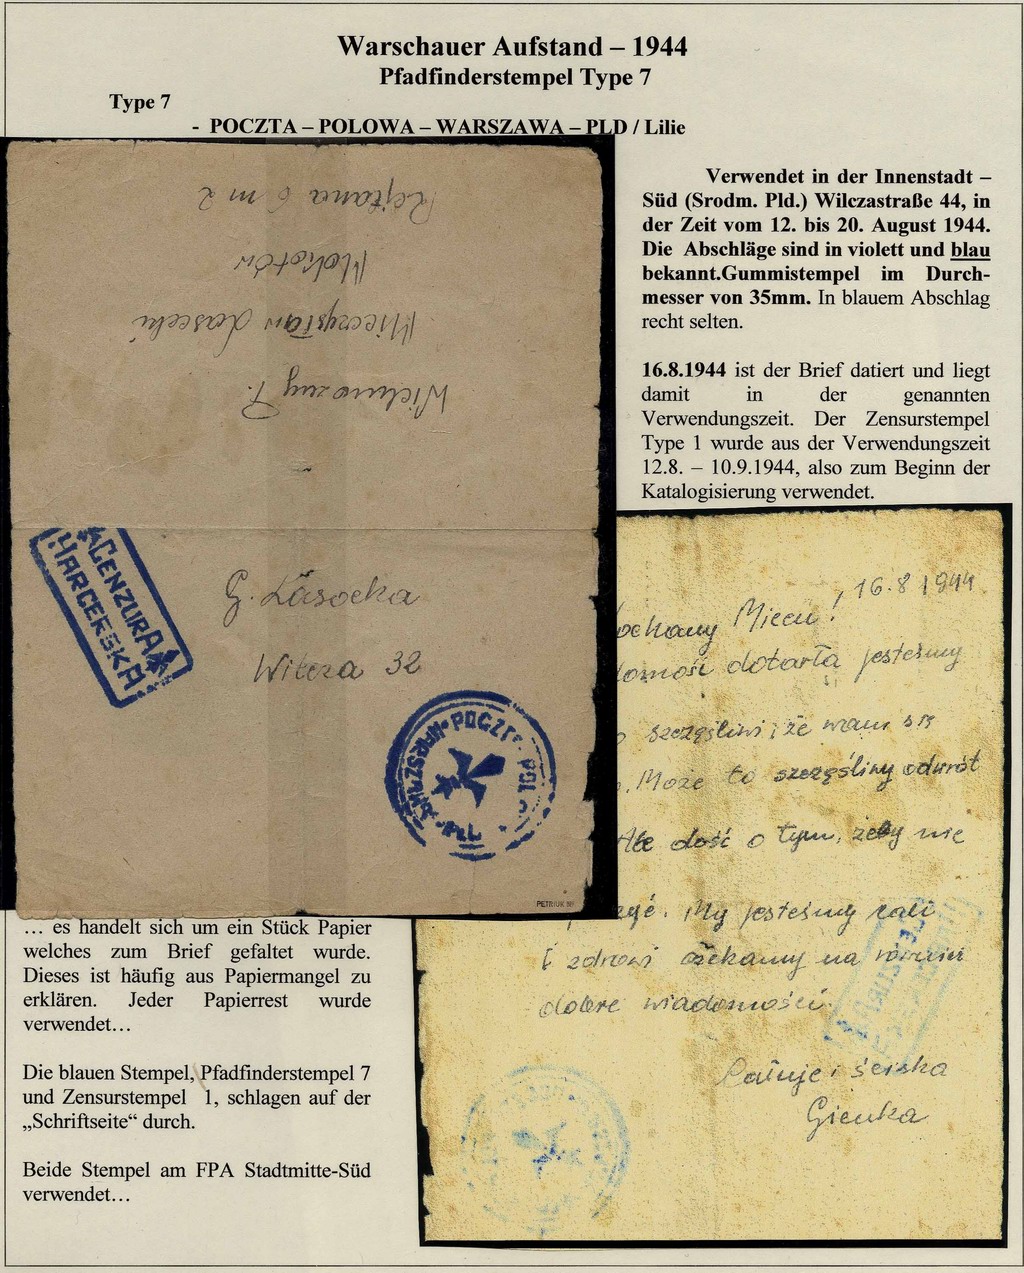 Warschauer Aufstand – 1944
Pfadfinderstempel Type 7
Type 7
- POCZTA – POLOWA – WARSZAWA – PLD / Lilie
Verwendet in der Innenstadt –
Süd (Srodm. Pld.) Wilczastraße 44, in
der Zeit vom 12. bis 20. August 1944.
Die Abschläge sind in violett und blau
bekannt.Gummistempel im Durch-
messer von 35mm. In blauem Abschlag
recht selten.
16.8.1944 ist der Brief datiert und liegt
damit in der genannten
Verwendungszeit. Der Zensurstempel
Type 1 wurde aus der Verwendungszeit
12.8. – 10.9.1944, also zum Beginn der
Katalogisierung verwendet.
Rejtana 6 m 2
Mokotów
Mieczysław Lasocki
CENZURA
HARCERSKA
G. Lasocka
Wilcza 32
WARSZAWA POCZTA
PETRIUK BPP
16.8 1944
Mieciu!
dotarła jesteśmy
szczęśliwi, że wam się
. Może to szczęśliwy odwrót
Ale dość o tym, żeby nie
. My jesteśmy cali
i zdrowi czekamy na również
dobre wiadomości.
Całuję i ściska
Gienka
... es handelt sich um ein Stück Papier
welches zum Brief gefaltet wurde.
Dieses ist häufig aus Papiermangel zu
erklären. Jeder Papierrest wurde
verwendet...
Die blauen Stempel, Pfadfinderstempel 7
und Zensurstempel 1, schlagen auf der
„Schriftseite“ durch.
Beide Stempel am FPA Stadtmitte-Süd
verwendet...